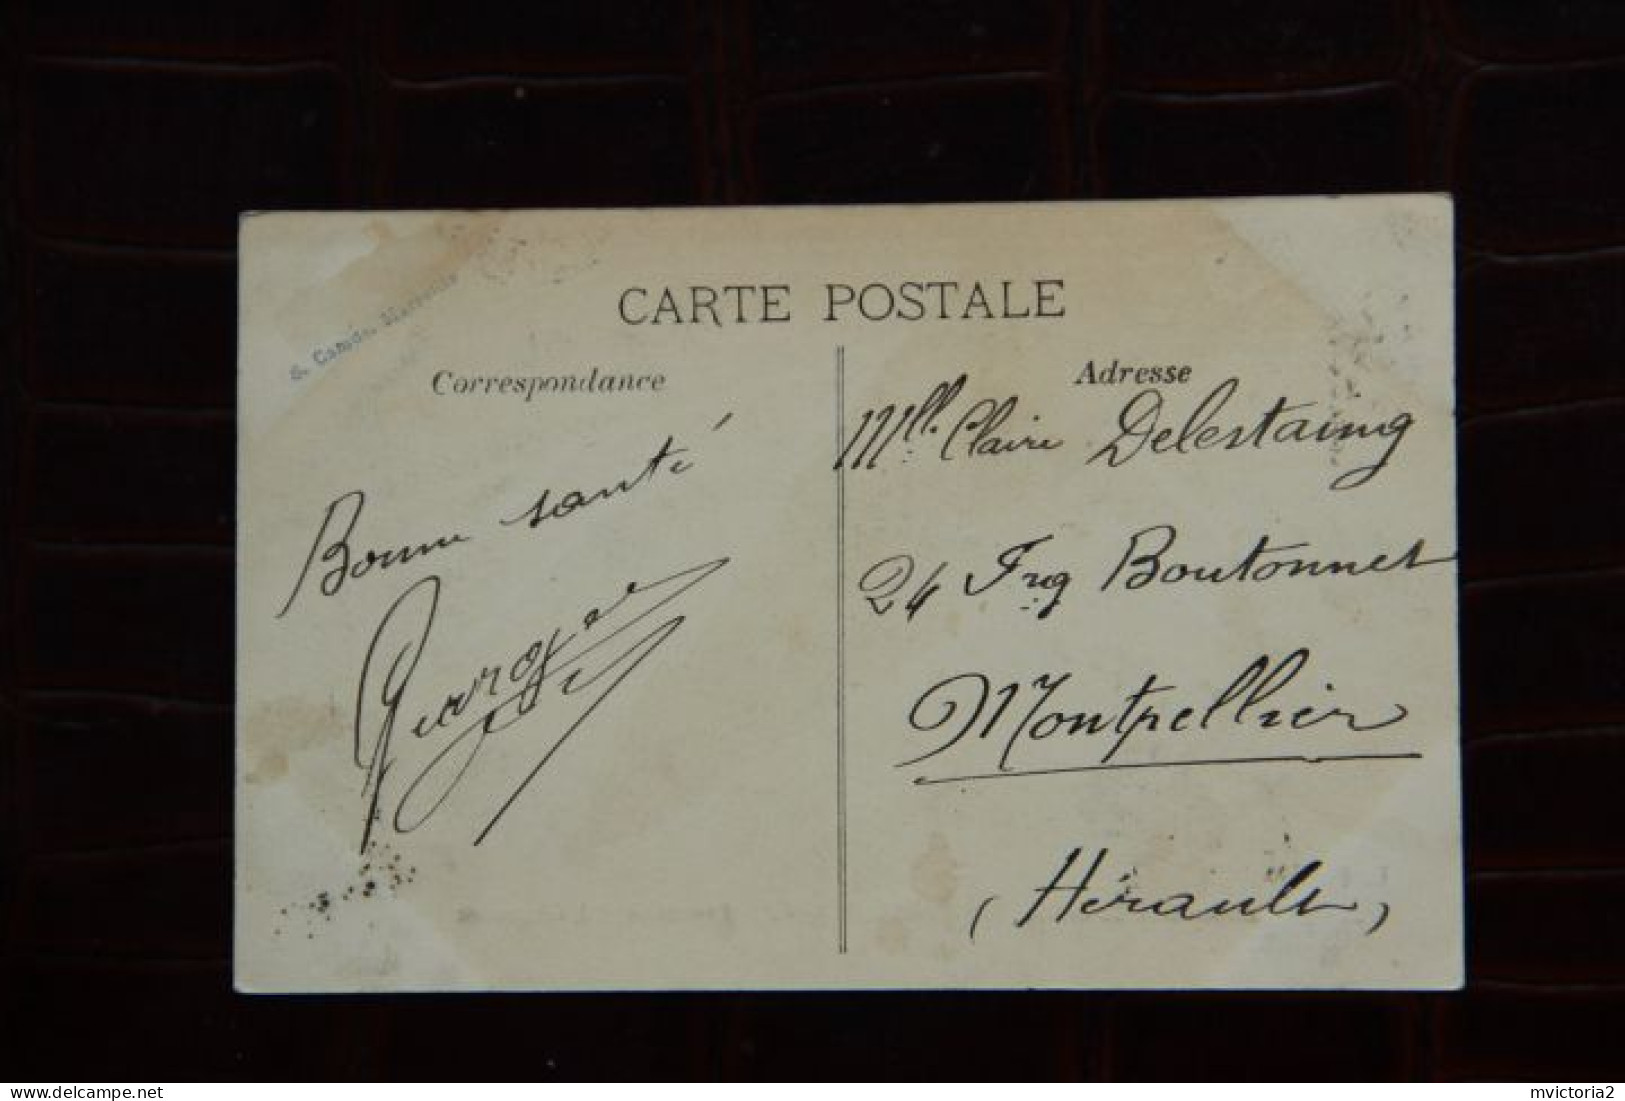 CARTE POSTALE
Correspondance
Bonne santé
S. Camoin, Marseille
Adresse
Mlle. Claire Delestaing
24 Fbg Boutonnet
Montpellier
(Hérault)
delcampe.net
mvictoria2